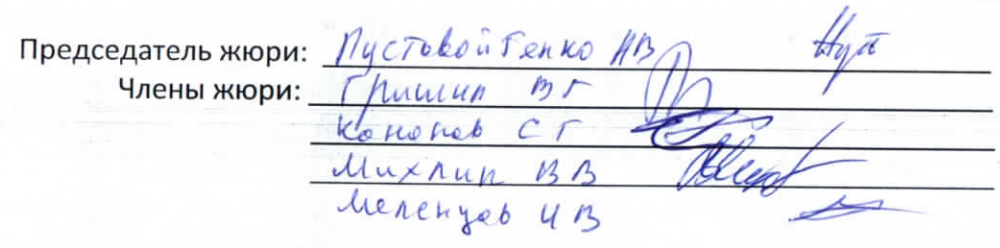 Председатель жюри: Пустовойтенко НВ
Члены жюри: Гришин ВГ
Конопов СГ
Михлин ВВ
Меленцов ИВ